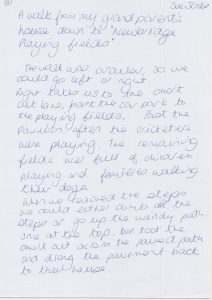 Sue Jones
A walk from my grand parent's
house down to "Newbridge
Playing fields"
The walk was circular, so we
could go left or right
Right takes us to the short
cut lane, past the car park to
the playing fields. Past the
pavilion often the cricketers
were playing. The remaining
fields were full of children
playing and families walking
their dogs
When we reached the steps
we could either climb all the
steps or go up the windy path.
once at the top, we took the
short cut across the paved path
and along the pavement back
to their house.